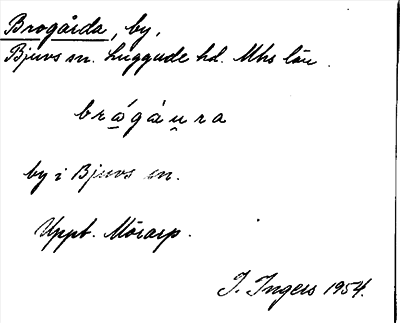 Brogårda, by,
Bjuvs sn. Luggude hd. Mhs län.
brǫ́gáu̯ra
by i Bjuvs sn.
Uppt. Mörarp.
I. Ingers 1954.